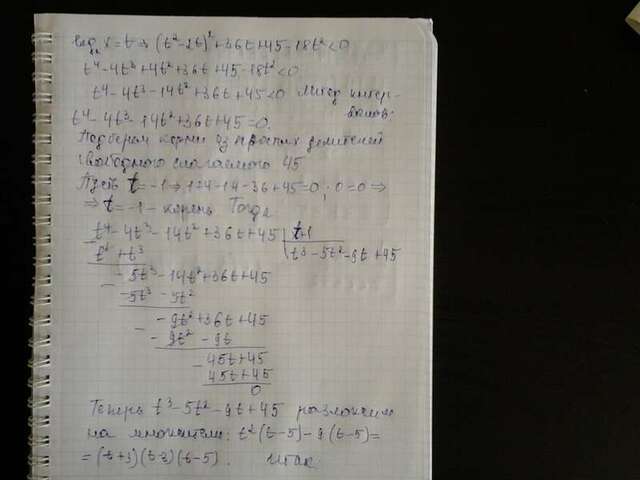 log₂x = t ⇒ (t² - 2t)² + 36t + 45 - 18t² < 0
t⁴ - 4t³ + 4t² + 36t + 45 - 18t² < 0
t⁴ - 4t³ - 14t² + 36t + 45 < 0 Метод интер-
валов:
t⁴ - 4t³ - 14t² + 36t + 45 = 0.
Подберем корни из простых делителей
свободного слагаемого 45
Пусть t = -1 ⇒ 1+4-14-36+45=0; 0=0 ⇒
⇒ t = -1 - корень Тогда
t⁴ - 4t³ - 14t² + 36t + 45 | t+1
t⁴ + t³ | t³ - 5t² - 9t + 45
- 5t³ - 14t² + 36t + 45
- 5t³ - 5t²
- 9t² + 36t + 45
- 9t² - 9t
45t + 45
45t + 45
0
Теперь t³ - 5t² - 9t + 45 разложим
на множители: t²(t-5) - 9(t-5) =
= (t+3)(t-3)(t-5). Итак